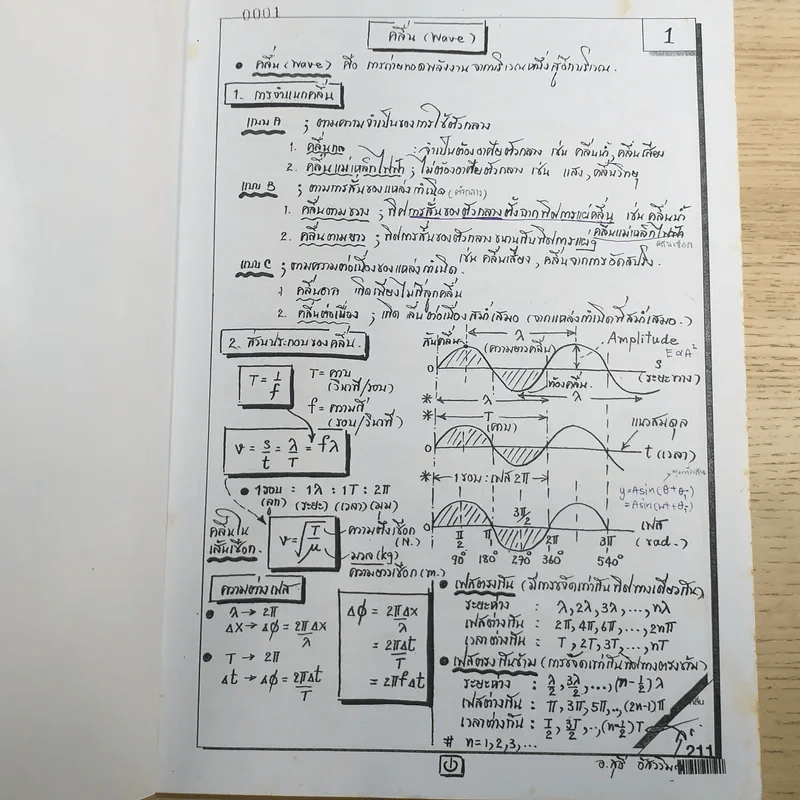 0001
คลื่น (Wave)
1
• คลื่น (Wave) คือ การถ่ายทอดพลังงานจากบริเวณหนึ่งสู่อีกบริเวณ.
1. การจำแนกคลื่น
แบบ A ; ตามความจำเป็นของการใช้ตัวกลาง
1. คลื่นกล : จำเป็นต้องอาศัยตัวกลาง เช่น คลื่นน้ำ, คลื่นเสียง
2. คลื่นแม่เหล็กไฟฟ้า ; ไม่ต้องอาศัยตัวกลาง เช่น แสง, คลื่นวิทยุ
แบบ B ; ตามการสั่นของแหล่งกำเนิด (ตัวกลาง)
1. คลื่นตามขวาง ; ทิศการสั่นของตัวกลางตั้งฉากทิศการแผ่คลื่น เช่น คลื่นน้ำ
คลื่นแม่เหล็กไฟฟ้า
2. คลื่นตามยาว ; ทิศการสั่นของตัวกลางขนานกับทิศการแผ่ฯ
คลื่นเชือก
เช่น คลื่นเสียง, คลื่นจากการอัดสปริง.
แบบ C ; ตามความต่อเนื่องของแหล่งกำเนิด.
1 คลื่นดล เกิดเพียงไม่กี่ลูกคลื่น
2. คลื่นต่อเนื่อง ; เกิดคลื่นต่อเนื่องสม่ำเสมอ (จากแหล่งกำเนิดที่สม่ำเสมอ.)
2. ส่วนประกอบของคลื่น.
T = 1/f
T = คาบ
(วินาที/รอบ)
f = ความถี่
(รอบ/วินาที)
v = s/t = λ/T = fλ
• 1รอบ : 1λ : 1T : 2π
(ลูก) (ระยะ) (เวลา) (มุม)
คลื่นใน
เส้นเชือก.
v = √(T/μ)
ความตึงเชือก
(N.)
มวล (kg)
ความยาวเชือก (m.)
สันคลื่น
λ
(ความยาวคลื่น)
Amplitude
E∝A²
0
s
(ระยะทาง)
ท้องคลื่น.
* λ
* T
(คาบ)
แนวสมดุล
0
t (เวลา)
* 1รอบ : เฟส 2π
y=Asin(θ+θᵢ)
=Asin(ωt+θᵢ)
0
π/2 π 3π/2 2π 3π
เฟส
(rad.)
90° 180° 270° 360° 540°
ความต่างเฟส
• λ → 2π
Δx → Δφ = 2πΔx/λ
• T → 2π
Δt → Δφ = 2πΔt/T
Δφ = 2πΔx/λ
= 2πΔt/T
= 2πfΔt
• เฟสตรงกัน (มีการขจัดเท่ากันทิศทางเดียวกัน)
ระยะห่าง : λ, 2λ, 3λ, ..., nλ
เฟสต่างกัน : 2π, 4π, 6π, ..., 2nπ
เวลาต่างกัน : T, 2T, 3T, ..., nT
• เฟสตรงกันข้าม (การขจัดเท่ากันทิศทางตรงข้าม)
ระยะห่าง : λ/2, 3λ/2, ..., (n-1/2)λ
เฟสต่างกัน : π, 3π, 5π, .., (2n-1)π
เวลาต่างกัน : T/2, 3T/2, .., (n-1/2)T
# n = 1, 2, 3, ...
211